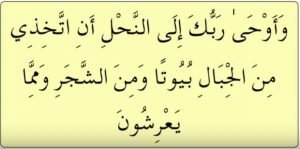 وَأَوْحَىٰ رَبُّكَ إِلَى النَّحْلِ أَنِ اتَّخِذِي
مِنَ الْجِبَالِ بُيُوتًا وَمِنَ الشَّجَرِ وَمِمَّا
يَعْرِشُونَ